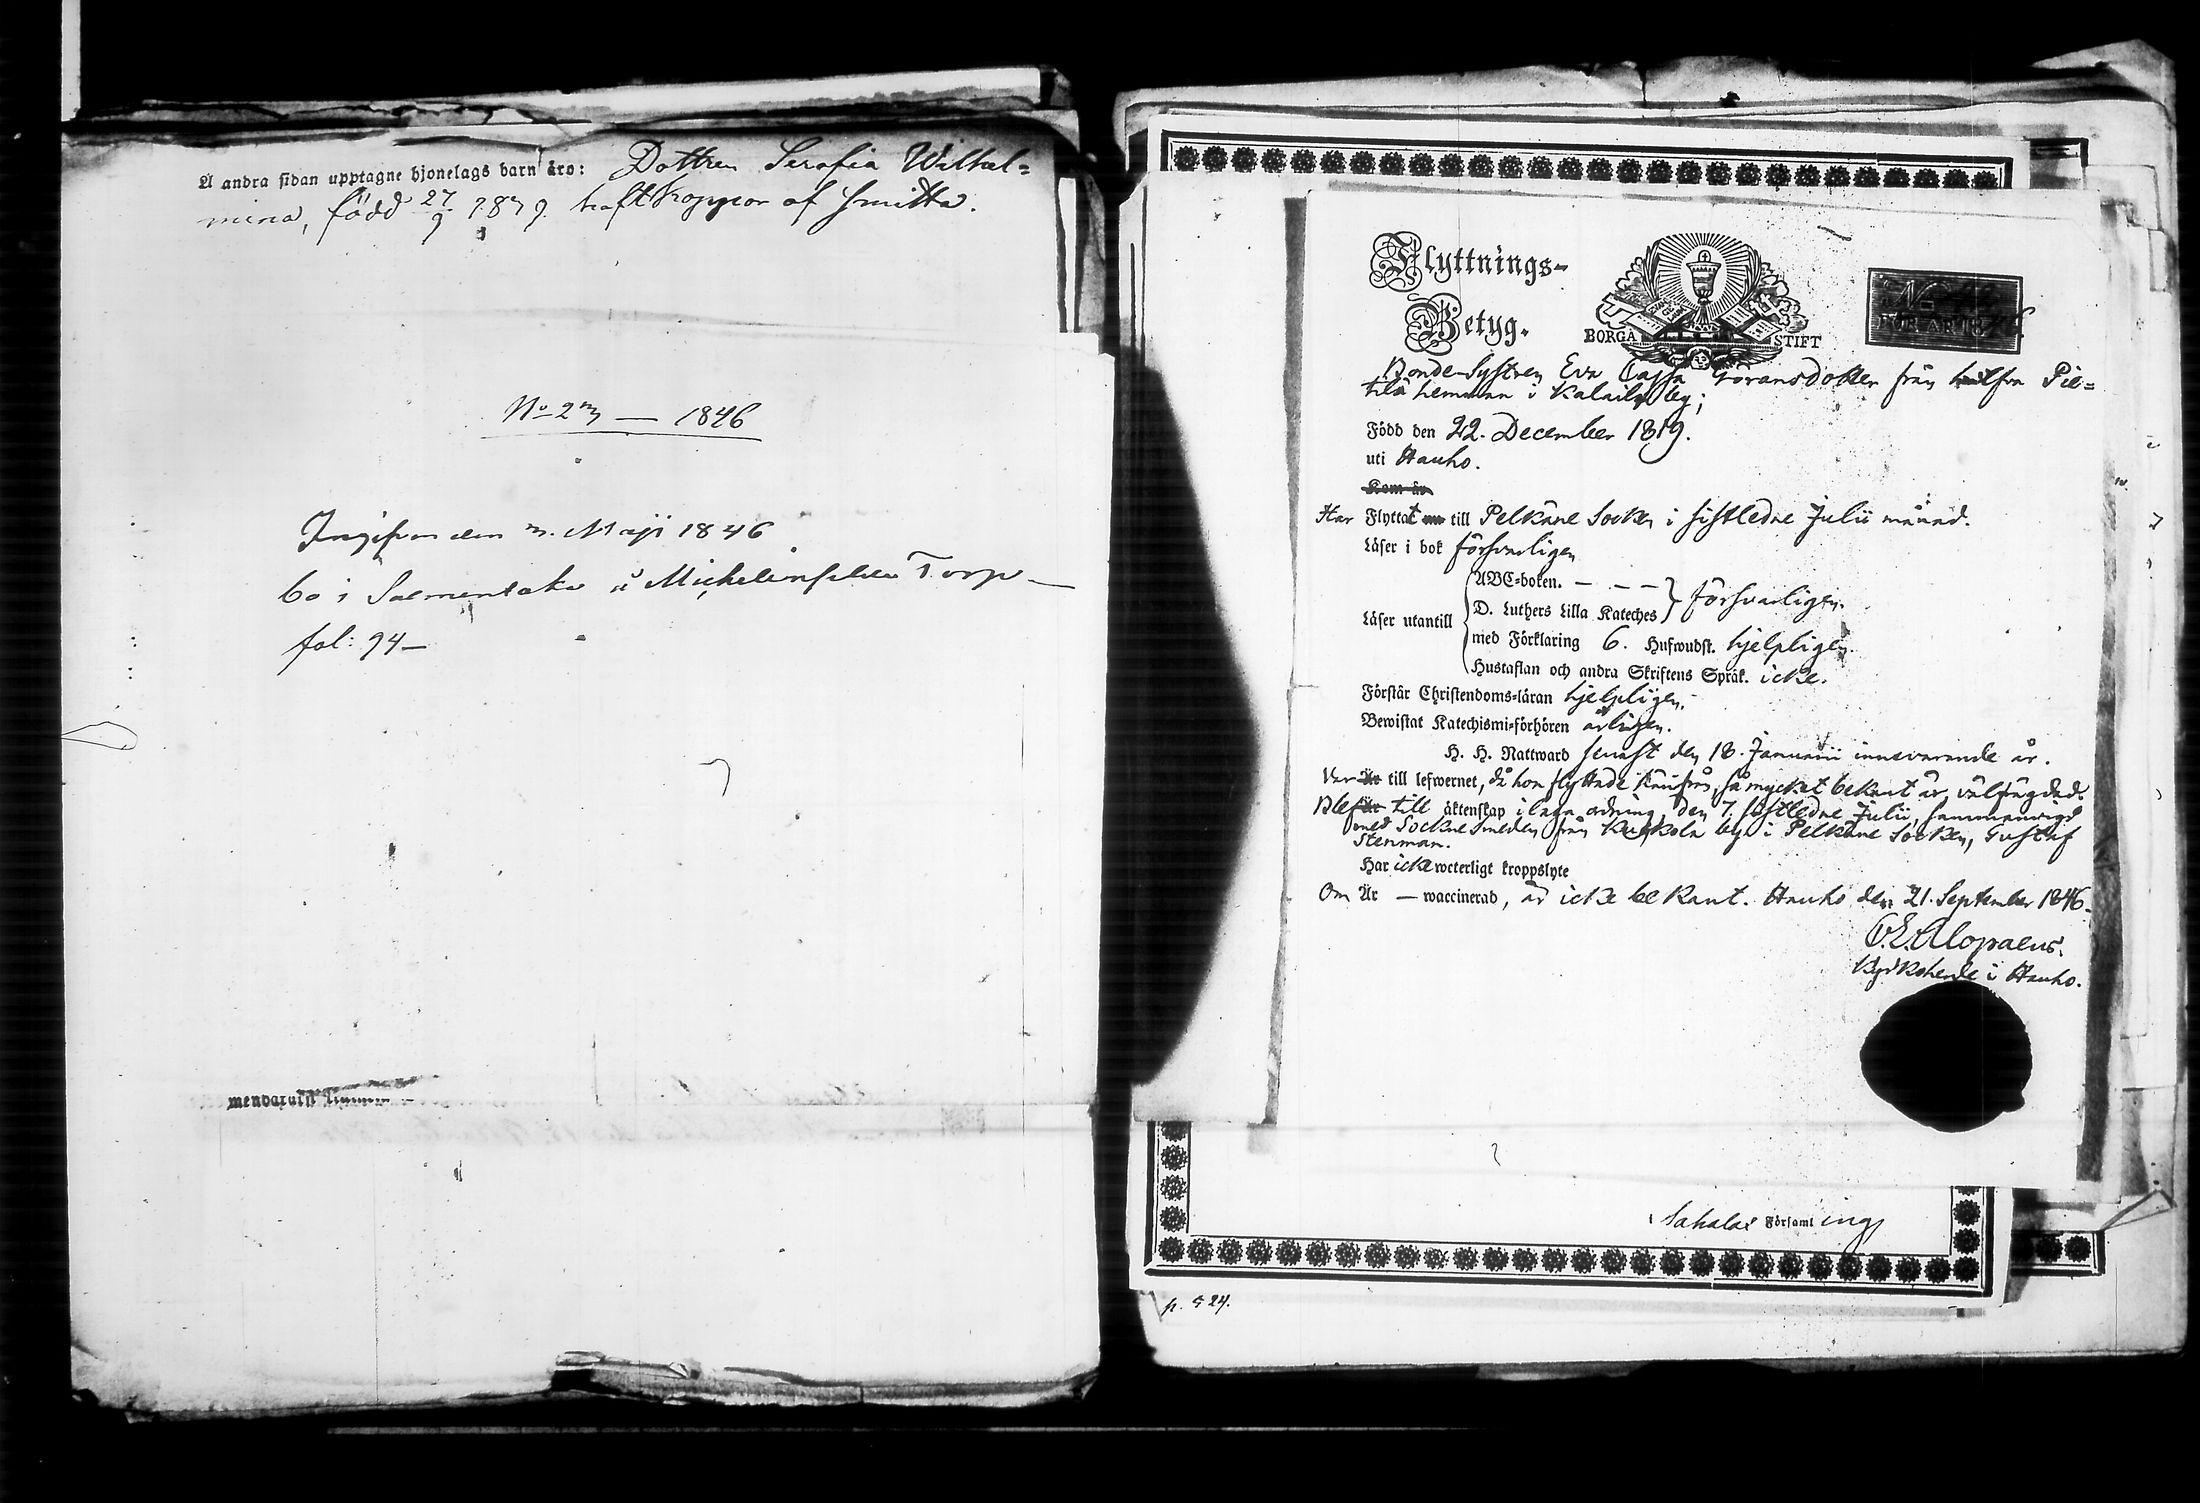 Å andra sidan upptagne hjonelags barn äro: Dottren Serafia Wilhel=
mina, född 27/9 1879. haft koppor af smitta.
No 23 — 1846
Ingifven den 3. Maji 1846
bo i Salmentaka å Michelinsilda Torp —
fol: 94 —
Flyttnings=
Betyg.
BORGÅ STIFT
FÖR ÅR 18
Bonde-Systren Eva Cajsa Göransdotter från hälfva Pie=
tilä hemman i Kalaila by;
Född den 22. December 1819.
uti Hauho.
Kom är
Har Flyttat till Pelkäne Socken i sistledne Julii månad.
Läser i bok försvarligen
Läser utantill
ABC=boken. — — —
D. Luthers Lilla Kateches försvarligen.
med Förklaring 6. Hufwudst. hjelpligen.
Hustaflan och andra Skriftens Språk. icke.
Förstår Christendoms=läran hjelpligen.
Bewistat Katechismi=förhören årligen.
H. H. Nattward senast den 18. Januarii innevarande år.
Var är till lefwernet, då hon flyttade härifrån, så mycket bekant är, välfrägdad.
Blef är till äktenskap i laga ordning, den 7. sistledne Julii, sammanvigd
med Sockne Smeden från Kuckola by i Pelkäne Socken, Gustaf
Stenman.
Har icke weterligt kroppslyte
Om Är — waccinerad, är icke bekant. Hauho den 21. September 1846.
Alopaeus.
Kyrkoherde i Hauho.
Sahalax Församling
p. 524.